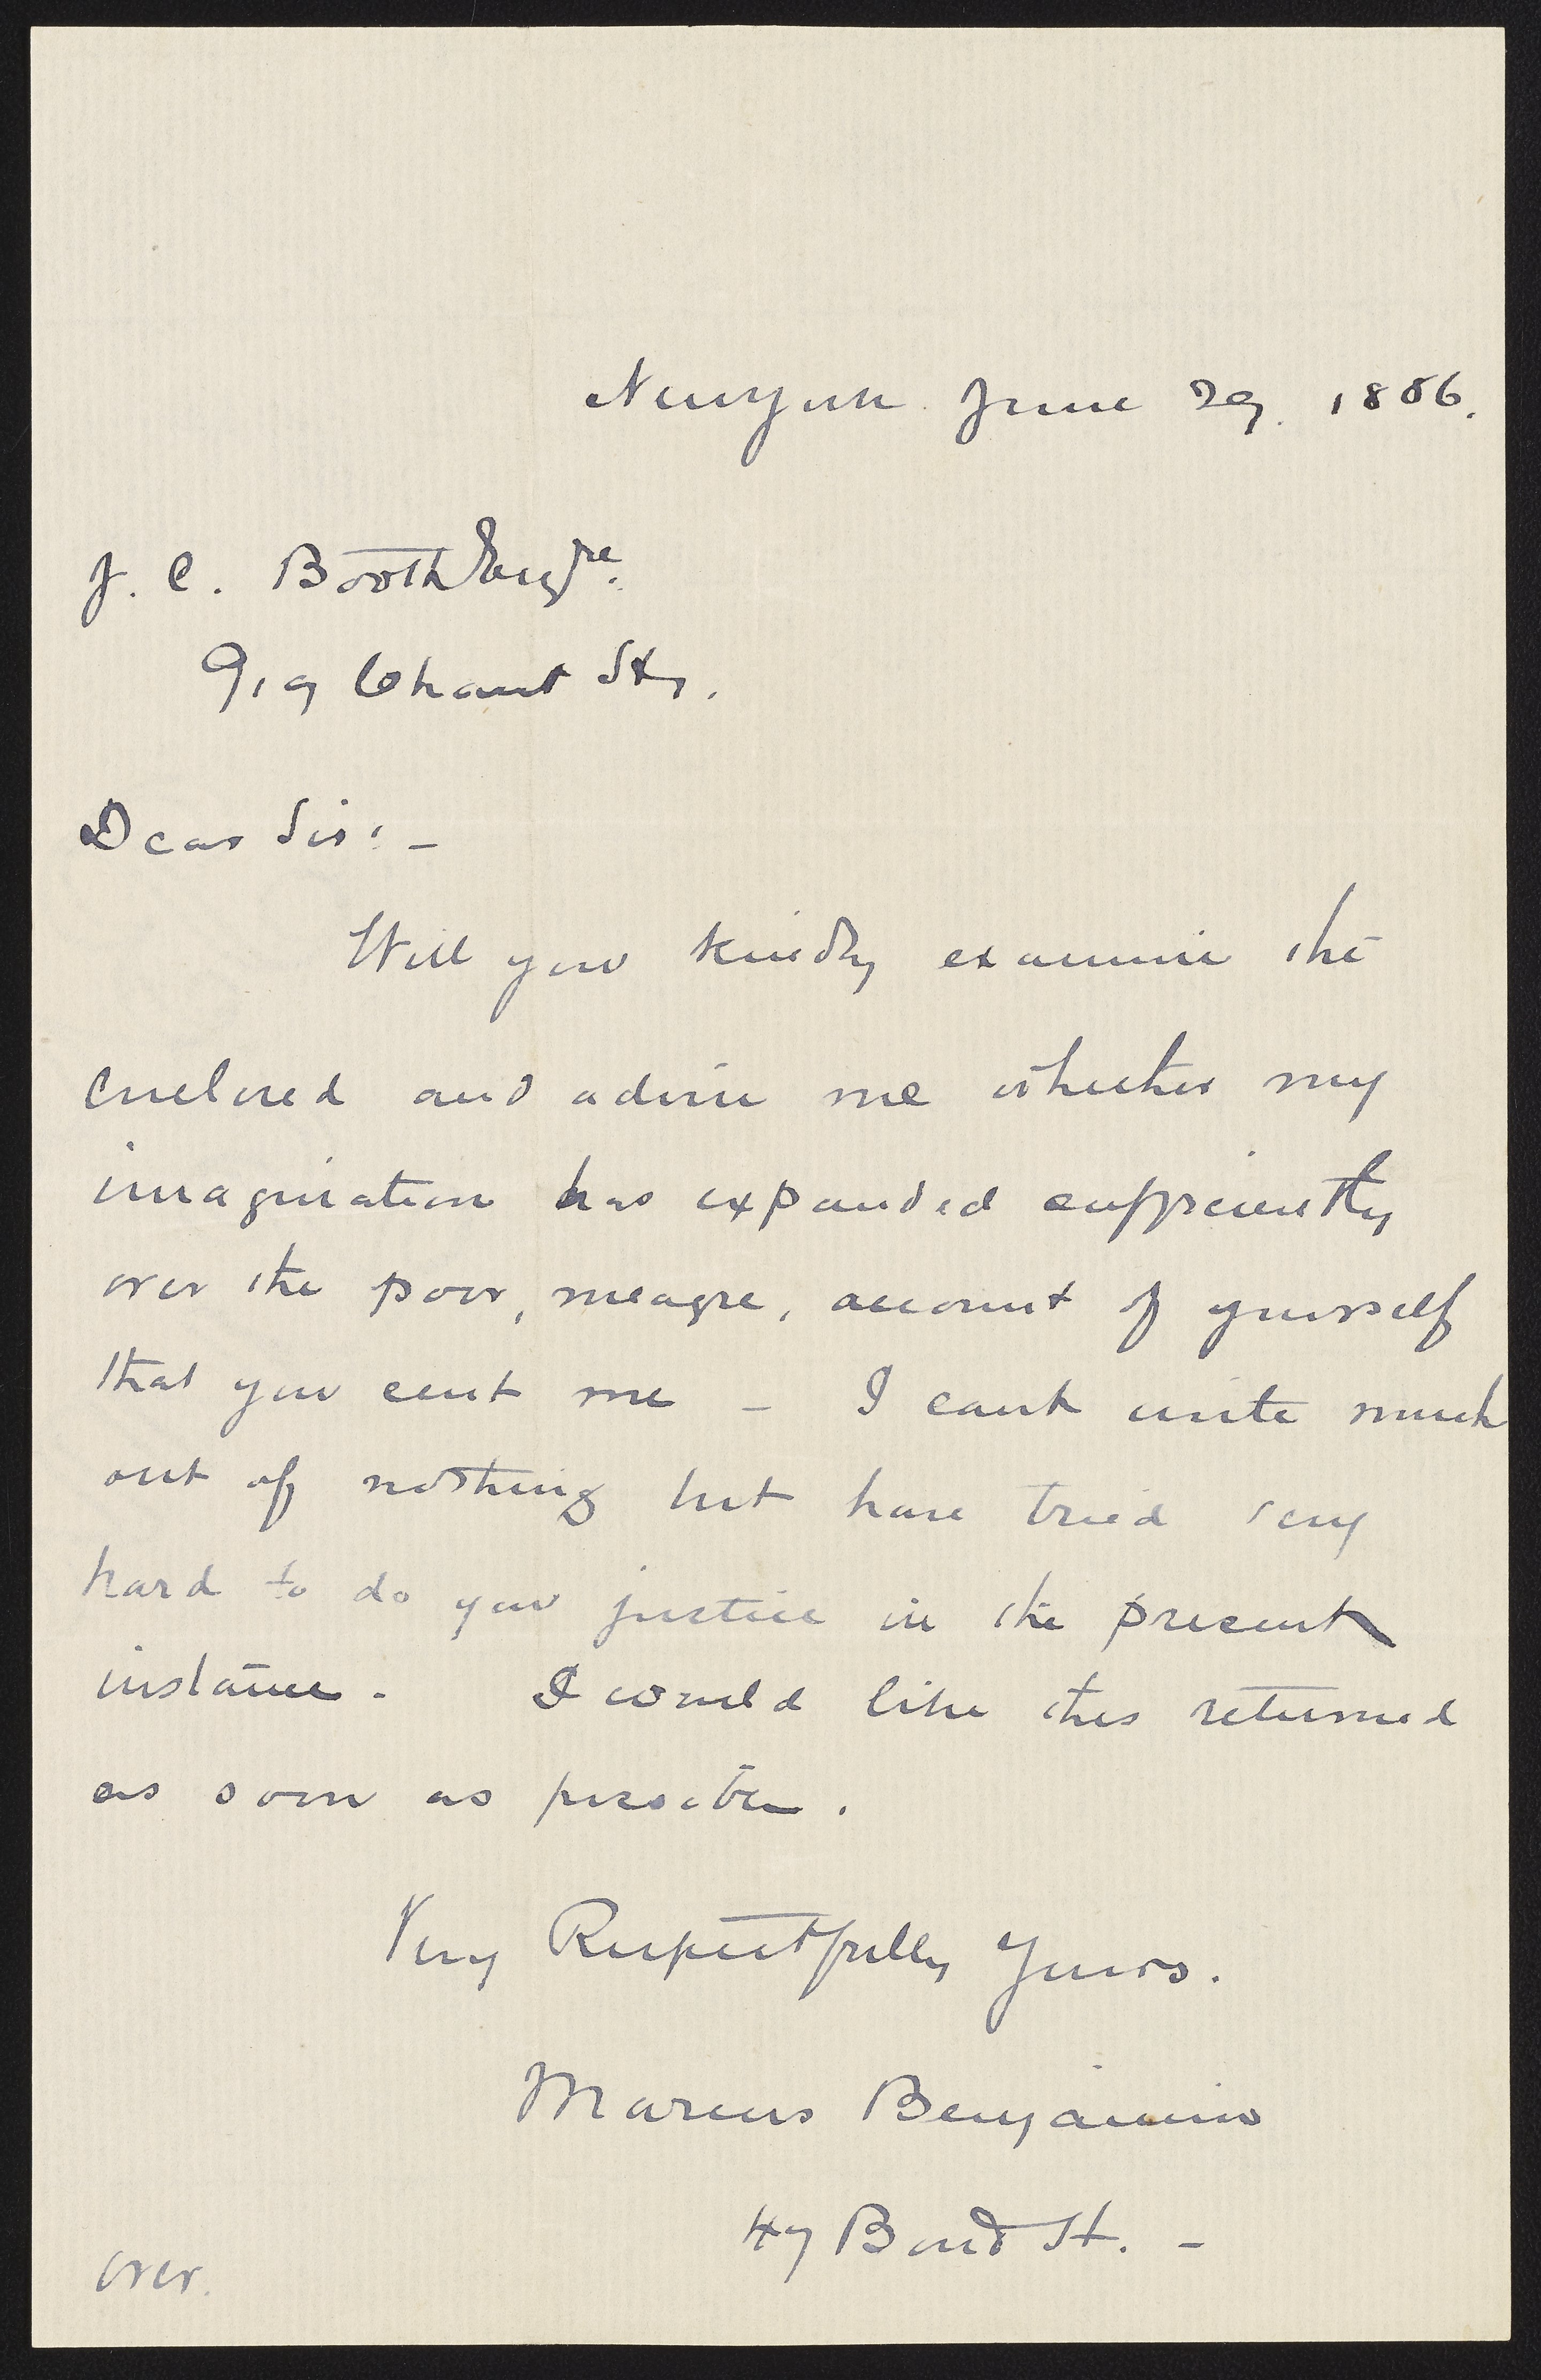 New York June 29. 1886.
J. C. Booth Esqre.
919 Chant St,.
Dear Sir: -
Will you kindly examine the
enclosed and advise me whether my
imagination has expanded sufficiently
over the poor, meagre, account of yourself
that you sent me - I cant write much
out of nothing but have tried very
hard to do you justice in the present
instance. I would like this returned
as soon as possible.
Very Respectfully Yours.
Marcus Benjamin
47 Bond St. -
over.